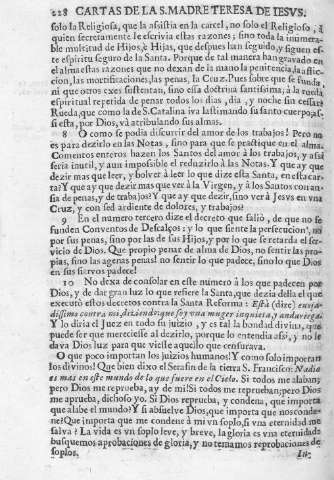 228 CARTAS DE LA S. MADRE TERESA DE IESVS.
solo la Religiosa, que la asistia en la carcel, no solo el Religioso, à
quien secretamente le escrivia estas razones; sino toda la inumera-
ble multitud de Hijos, è Hijas, que despues han seguido, y siguen es-
te espiritu seguro de la Santa. Porque de tal manera han gravado en
el alma estas razones que no dexan de la mano la penitencia, la aflic-
cion, las mortificaciones, las penas, la Cruz. Pues sabe que se funda,
ni que otros exes sustentan, sino essa doctrina santissima, à la rueda
espiritual repetida de penar todos los dias, dia, y noche sin cessar
Rueda, que como la de S. Catalina iva lastimando su santo cuerpo, es-
ta, por Dios, và atribulando sus almas.
8 O como se podia discurrir del amor de los trabajos! Pero no
es para dezirlo en las Notas, sino para que se practique en el alma.
Comentos enteros hazen los Santos del amor à los trabajos, y assi
seria inutil, y aun impossible el reduzirlo à las Notas. Y que ay que
dezir mas que leer, y bolver à leer lo que dize esta Santa, en esta car-
ta? Y que ay que dezir mas que ver à la Virgen, y à los Santos con an-
sia de penas, y de trabajos? Y que ay que dezir, sino ver à Jesvs en vna
Cruz, y con sed ardiente de dolores, y trabajos?
9 En el numero tercero dize el decreto que saliò, de que no se
funden Conventos de Descalços: y lo que siente la persecucion, no
por sus penas, sino por las de sus Hijos, y por lo que se retarda el ser-
vicio de Dios. Que propio penar de alma de Dios, no sentir las pro-
pias, sino las agenas penas! no sentir lo que padece, sino lo que Dios
en sus siervos padece!
10 No dexa de consolar en este numero à los que padecen por
Dios, y de dar gran luz lo que refiere la Santa, que dezia della el que
executò estos decretos contra la Santa Reforma: Està (dize)
dissimo contra mi, diziendo: que soy vna muger inquieta, y andariega.
Y lo diria el Juez en todo su juizio, y es tal la bondad divina, que
puede ser que mereciesse al dezirlo, porque lo entendia assi, y no le
dava Dios luz para que viesse aquello que censurava.
O que poco importan los juizios humanos! Y como solo importan
los divinos! Que bien dixo el Serafin de la tierra S. Francisco: Nadie
es mas en este mundo de lo que fuere en el Cielo. Si todos me alaban,
pero Dios me reprueba, ay de mi! Si todos me reprueban; pero Dios
me aprueba, dichoso yo. Si Dios reprueba, y condena, que importa
que alabe el mundo? Y si absuelve Dios, que importa que nos conde-
ne? Que importa que me condene à mi vn soplo, si vna eternidad me
salva? La vida es vn soplo leve, y breve, la gloria es vna eternidad:
busquemos aprobaciones de gloria, y no temamos reprobaciones de
soplos.